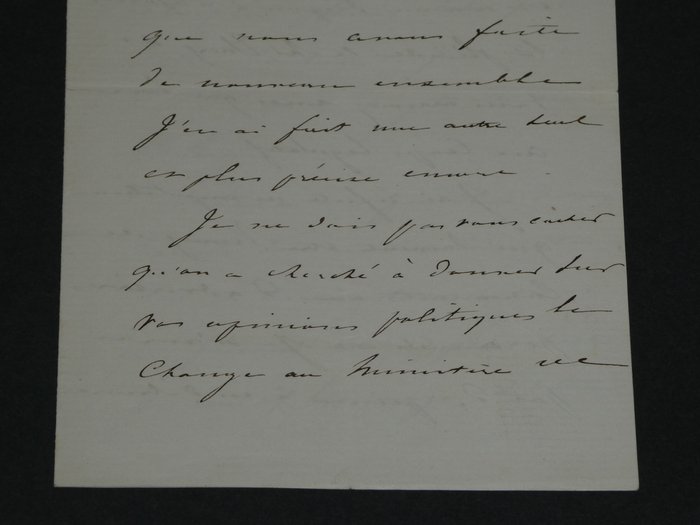 que nous avons faite
de nouveau ensemble
J'en ai fait une autre seul
et plus précise encore.
Je ne dois pas vous cacher
qu'on a cherché à donner sur
vos opinions politiques le
change au Ministère et